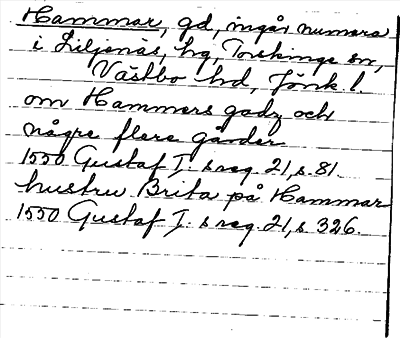 Hammar, gd, ingår numera
i Liljenäs, hg, Torskinge sn,
Västbo hd, Jönk. l.
om Hammers godz och
någre flere gårder
1550 Gustaf I:s reg. 21, s. 81.
hustru Brita på Hammar
1550 Gustaf I:s reg. 21, s. 326.